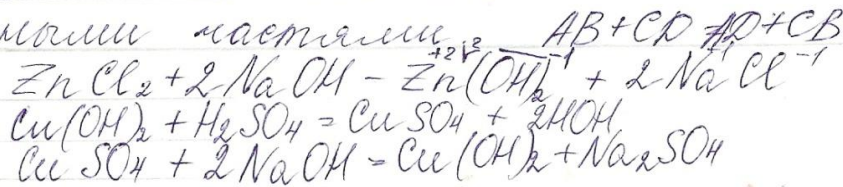 ными частями AB + CD = AD + CB
ZnCl₂ + 2NaOH – Zn⁺²(OH)₂⁻¹ + 2Na⁺¹Cl⁻¹
Cu(OH)₂ + H₂SO₄ = CuSO₄ + 2HOH
CuSO₄ + 2NaOH = Cu(OH)₂ + Na₂SO₄